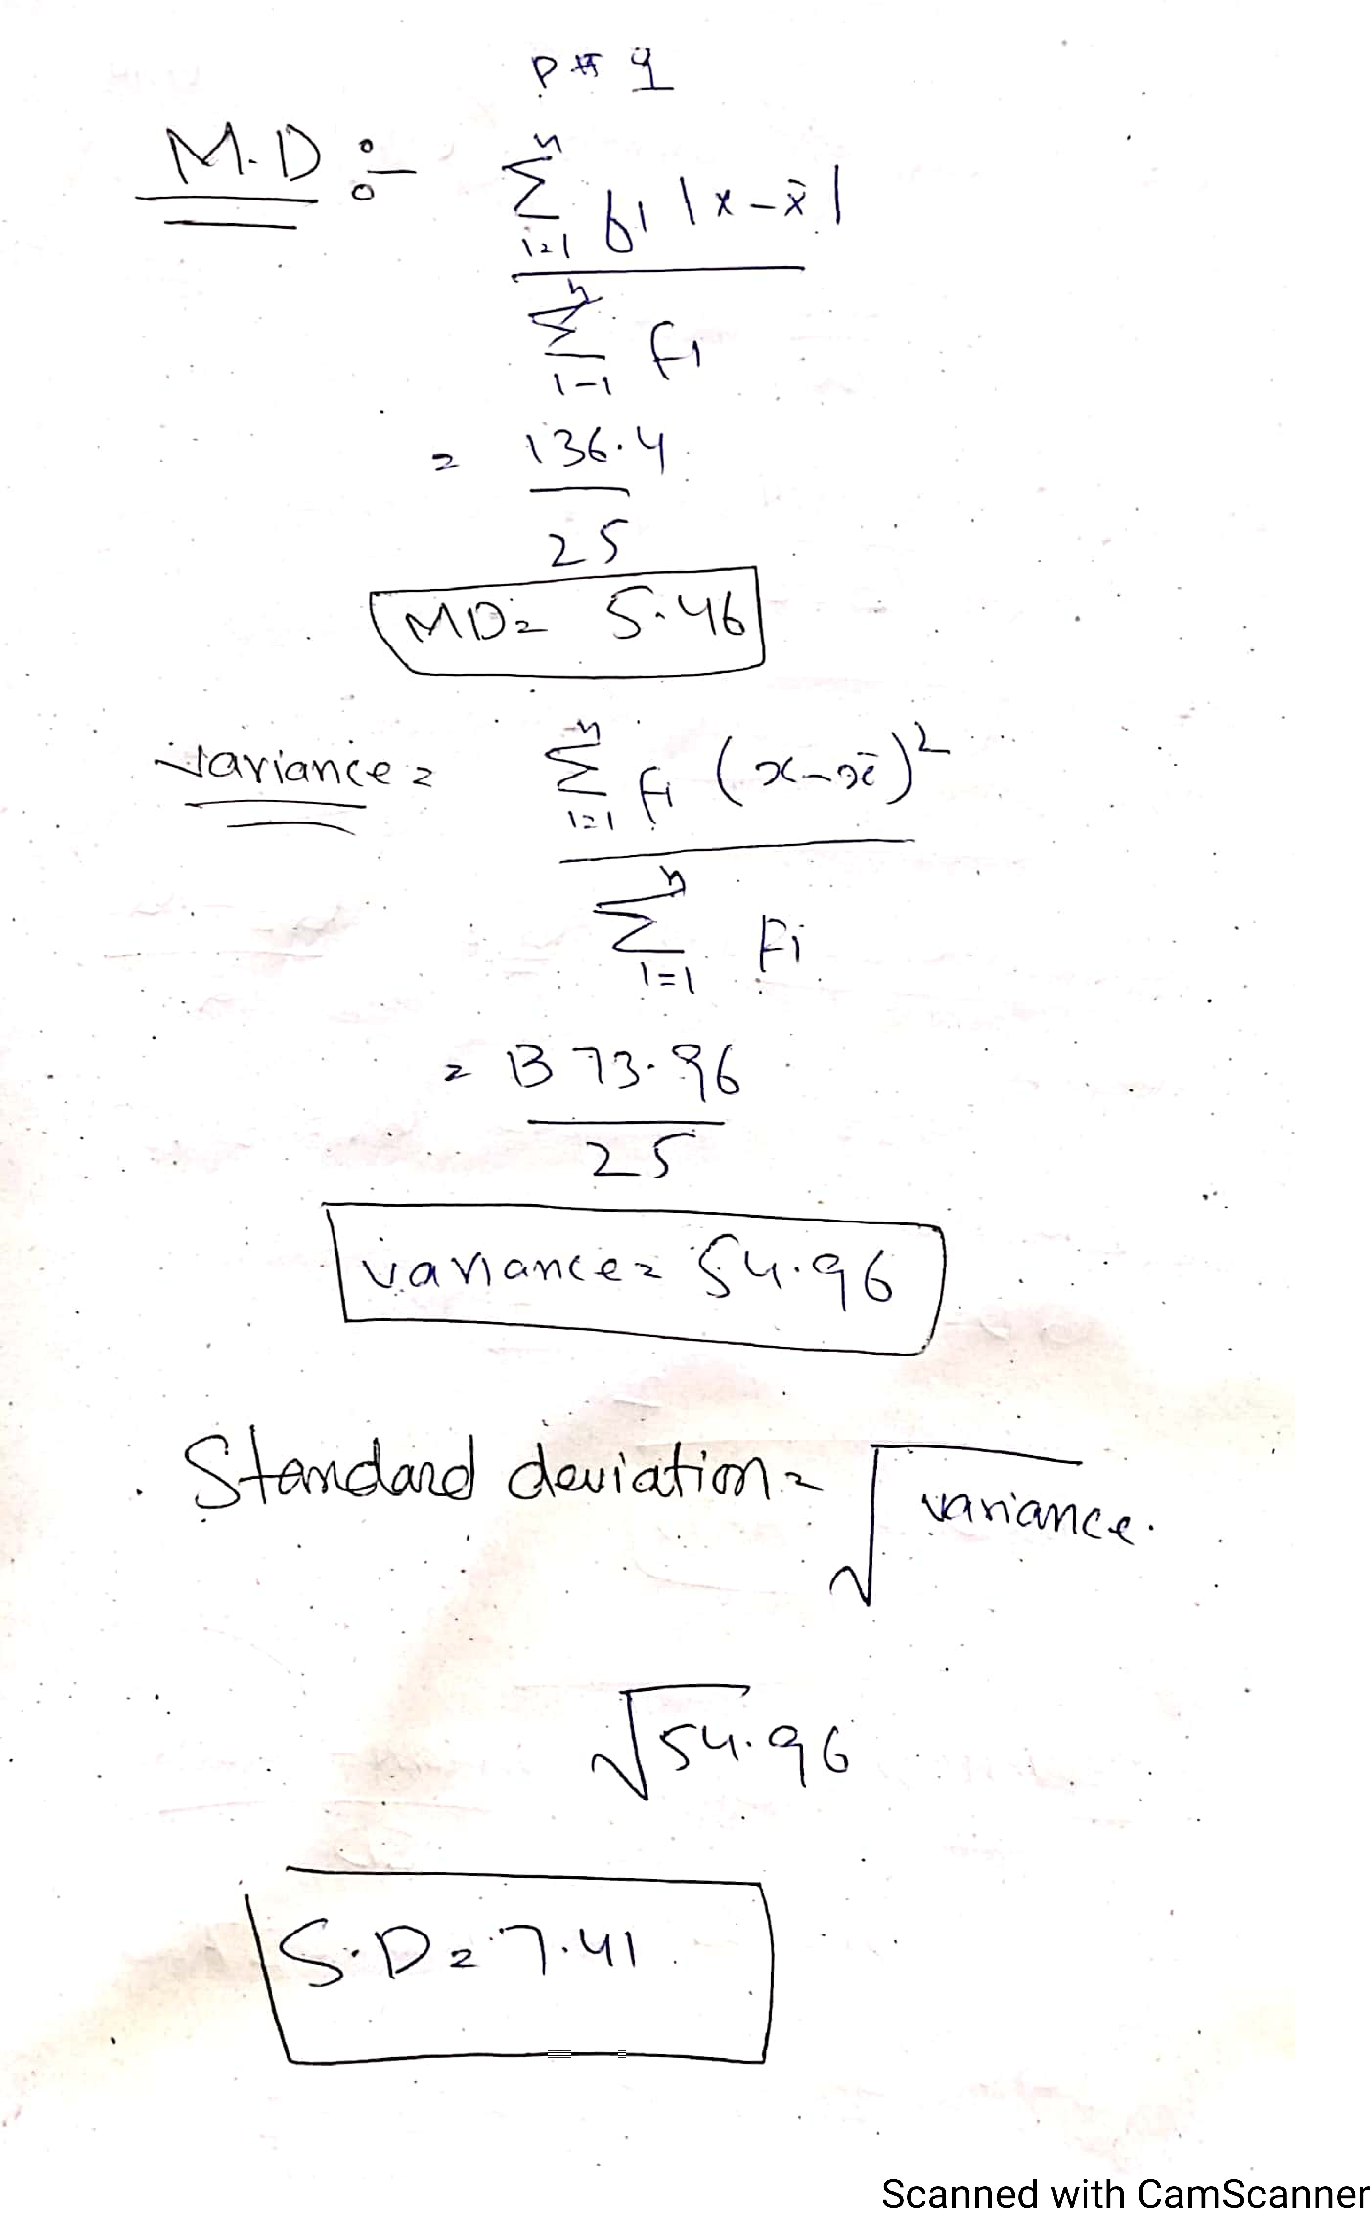 P # 9
M.D :-
n
∑ fi |x - x̄|
i=1
n
∑ fi
1-1
= 136.4
25
MD = 5.46
variance =
n
∑ fi (x - x̄)²
i=1
n
∑ Fi
i=1
= 1373.96
25
variance = 54.96
Standard deviation = √variance.
√54.96
S.D = 7.41
Scanned with CamScanner